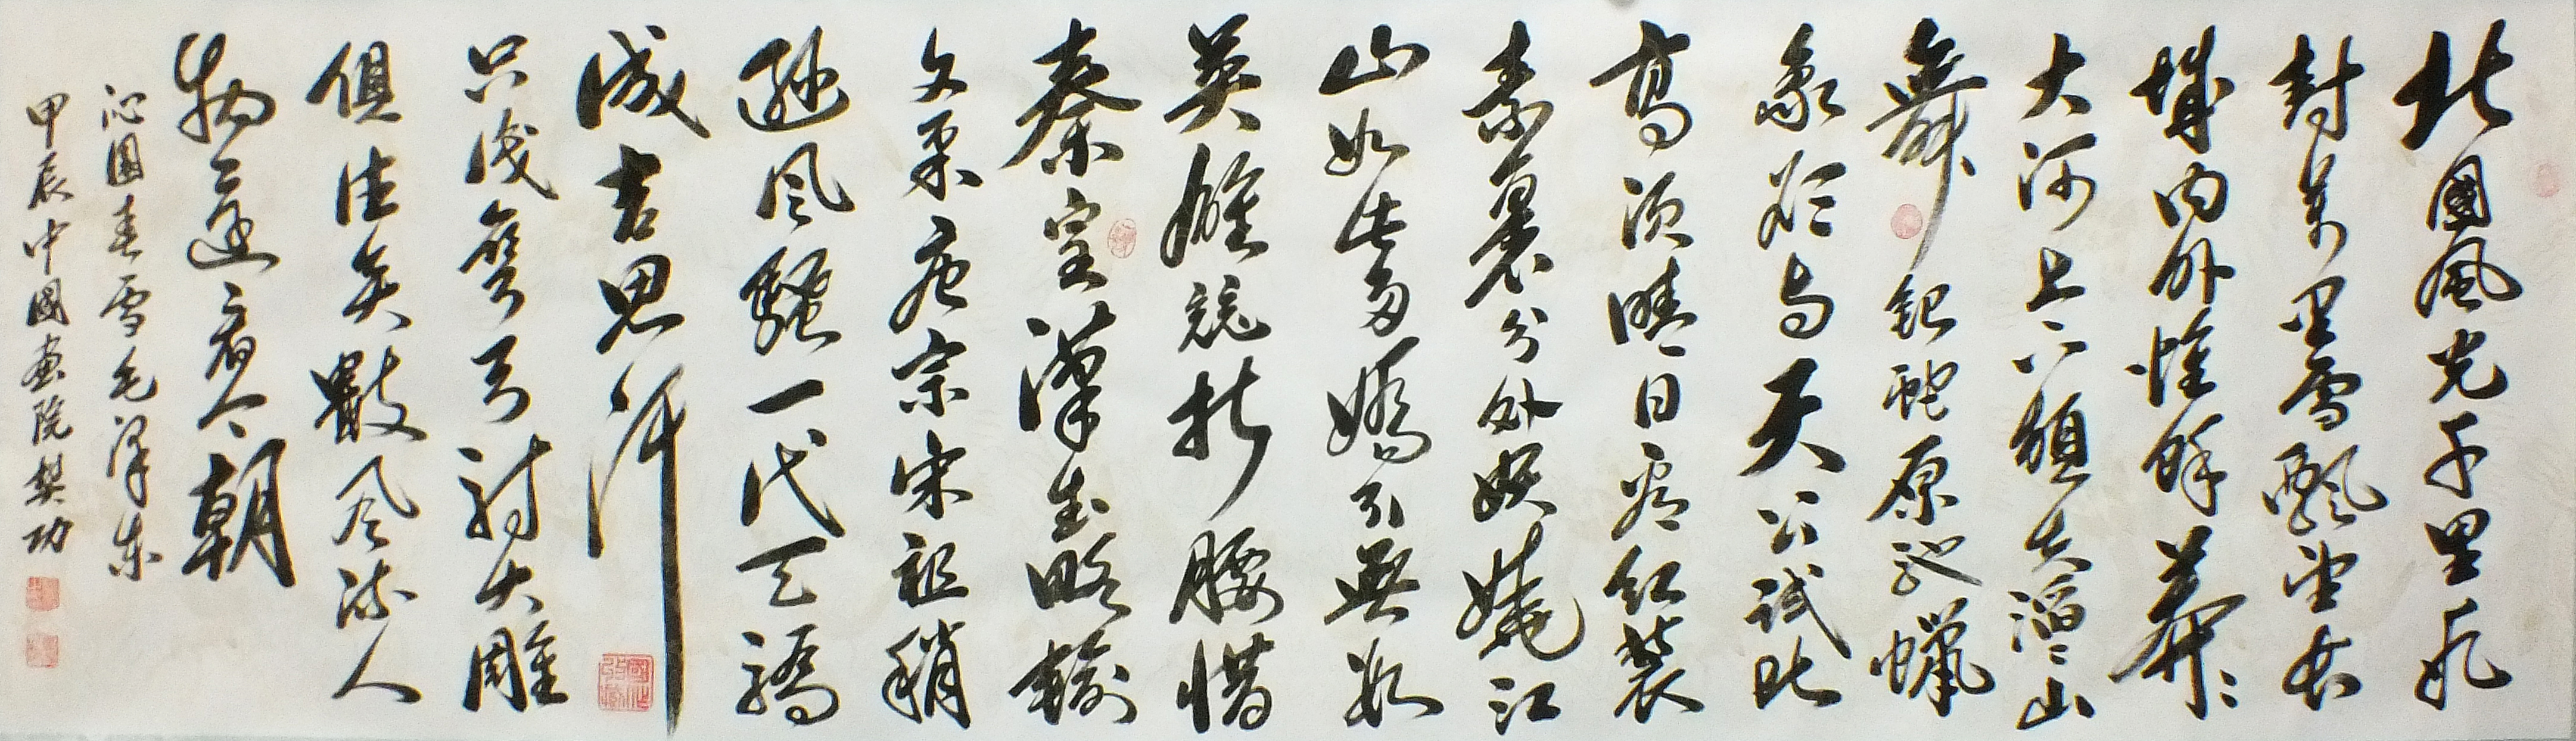 北國風光千里冰
封萬里雪飄望長
城内外惟餘莽々
大河上下頓失滔々山
舞銀蛇原馳蠟
象欲与天公試比
高須晴日看紅裝
素裹分外妖嬈江
山如此多嬌引無數
英雄競折腰惜
秦皇漢武略輸
文采唐宗宋祖稍
遜風騷一代天驕
成吉思汗
只識彎弓射大雕
俱往矣數風流人
物還看今朝
沁園春雪毛澤东
甲辰中國畫院樊功